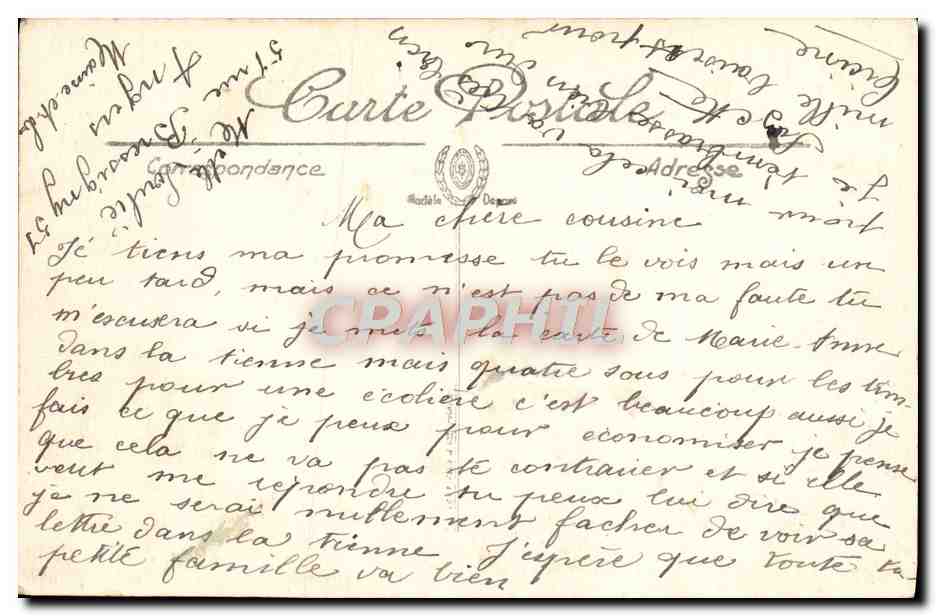 Carte Postale
Correspondance
Adresse
Modèle Déposé
Ma chère cousine
Je tiens ma promesse tu le vois mais un
peu tard, mais ce n'est pas de ma faute tu
m'escusera si je mets la carte de Marie-Anne
dans la tienne mais quatre sous pour les tim-
bres pour une écolière c'est beaucoup aussi je
fais ce que je peux pour économiser je pense
que cela ne va pas te contrarier et si elle
veut me répondre tu peux lui dire que
je ne serai nullement facher de voir sa
lettre dans la tienne J'espère que toute ta
petite famille va bien
pour moi cela va
Je t'embrasse bien
mille baisers pour
Melle
57 rue Bressigny 57
Angers
CPAPHIL